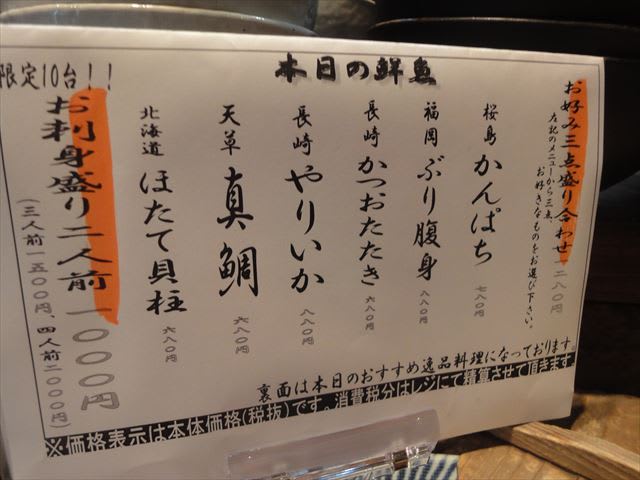 本日の鮮魚
お好み三点盛り合わせ 一二八〇円
左記のメニューから三点、
お好きなものをお選び下さい。
桜島 かんぱち 七八〇円
福岡 ぶり腹身 八八〇円
長崎 かつおたたき 六八〇円
長崎 やりいか 八八〇円
天草 真鯛 六八〇円
北海道 ほたて貝柱 六八〇円
限定10台!!
お刺身盛り二人前 一〇〇〇円
(三人前一五〇〇円、四人前二〇〇〇円)
裏面は本日のおすすめ逸品料理になっております。
※価格表示は本体価格(税抜)です。消費税分はレジにて精算させて頂きます。